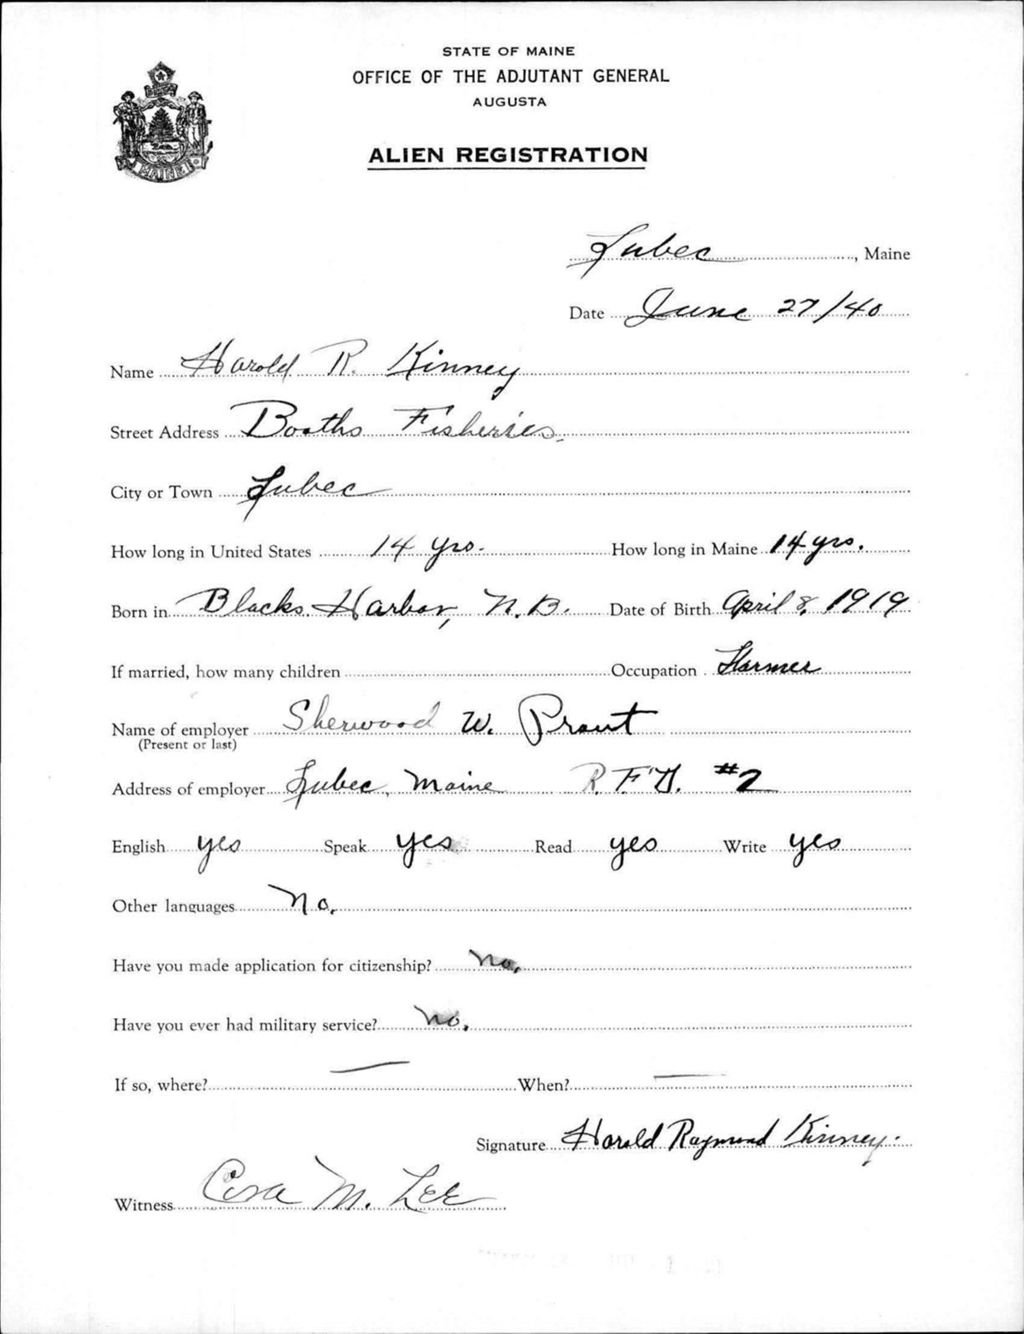 STATE OF MAINE
OFFICE OF THE ADJUTANT GENERAL
AUGUSTA
ALIEN REGISTRATION
MAINE
Lubec, Maine
Date June 27/40
Name Harold R. Kinney
Street Address Booths Fisheries.
City or Town Lubec
How long in United States 14 yrs. How long in Maine 14 yrs.
Born in Blacks Harbor, N.B. Date of Birth April 8, 1919
If married, how many children Occupation Farmer
Name of employer Sherwood W. Prout
(Present or last)
Address of employer Lubec, Maine R.F.D. #2
English yes Speak yes Read yes Write yes
Other languages No.
Have you made application for citizenship? No.
Have you ever had military service? No.
If so, where? — When? —
Signature Harold Raymond Kinney.
Witness Cora M. Lee